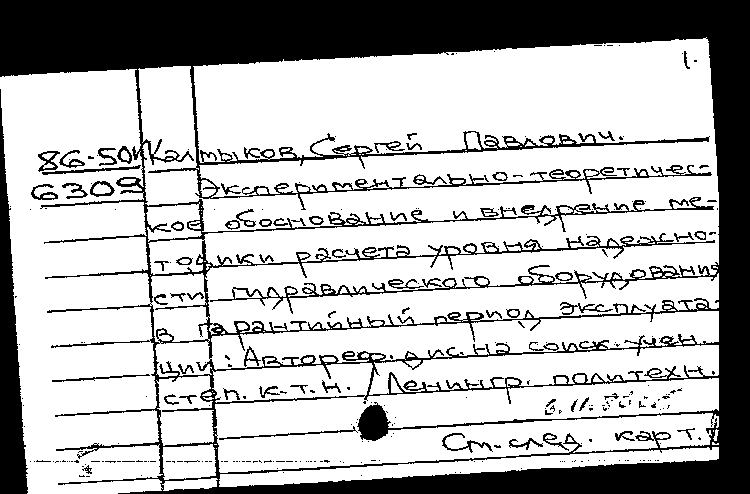 1.
86-50к Калмыков, Сергей Павлович.
6309 Экспериментально-теоретичес-
кое обоснование и внедрение ме-
тодики расчета уровня надежно-
сти гидравлического оборудования
в гарантийный период эксплуата-
ции: Автореф. дис. на соиск. учен.
степ. к.т.н. / Ленингр. политехн.
6.11.
См. след. карт.